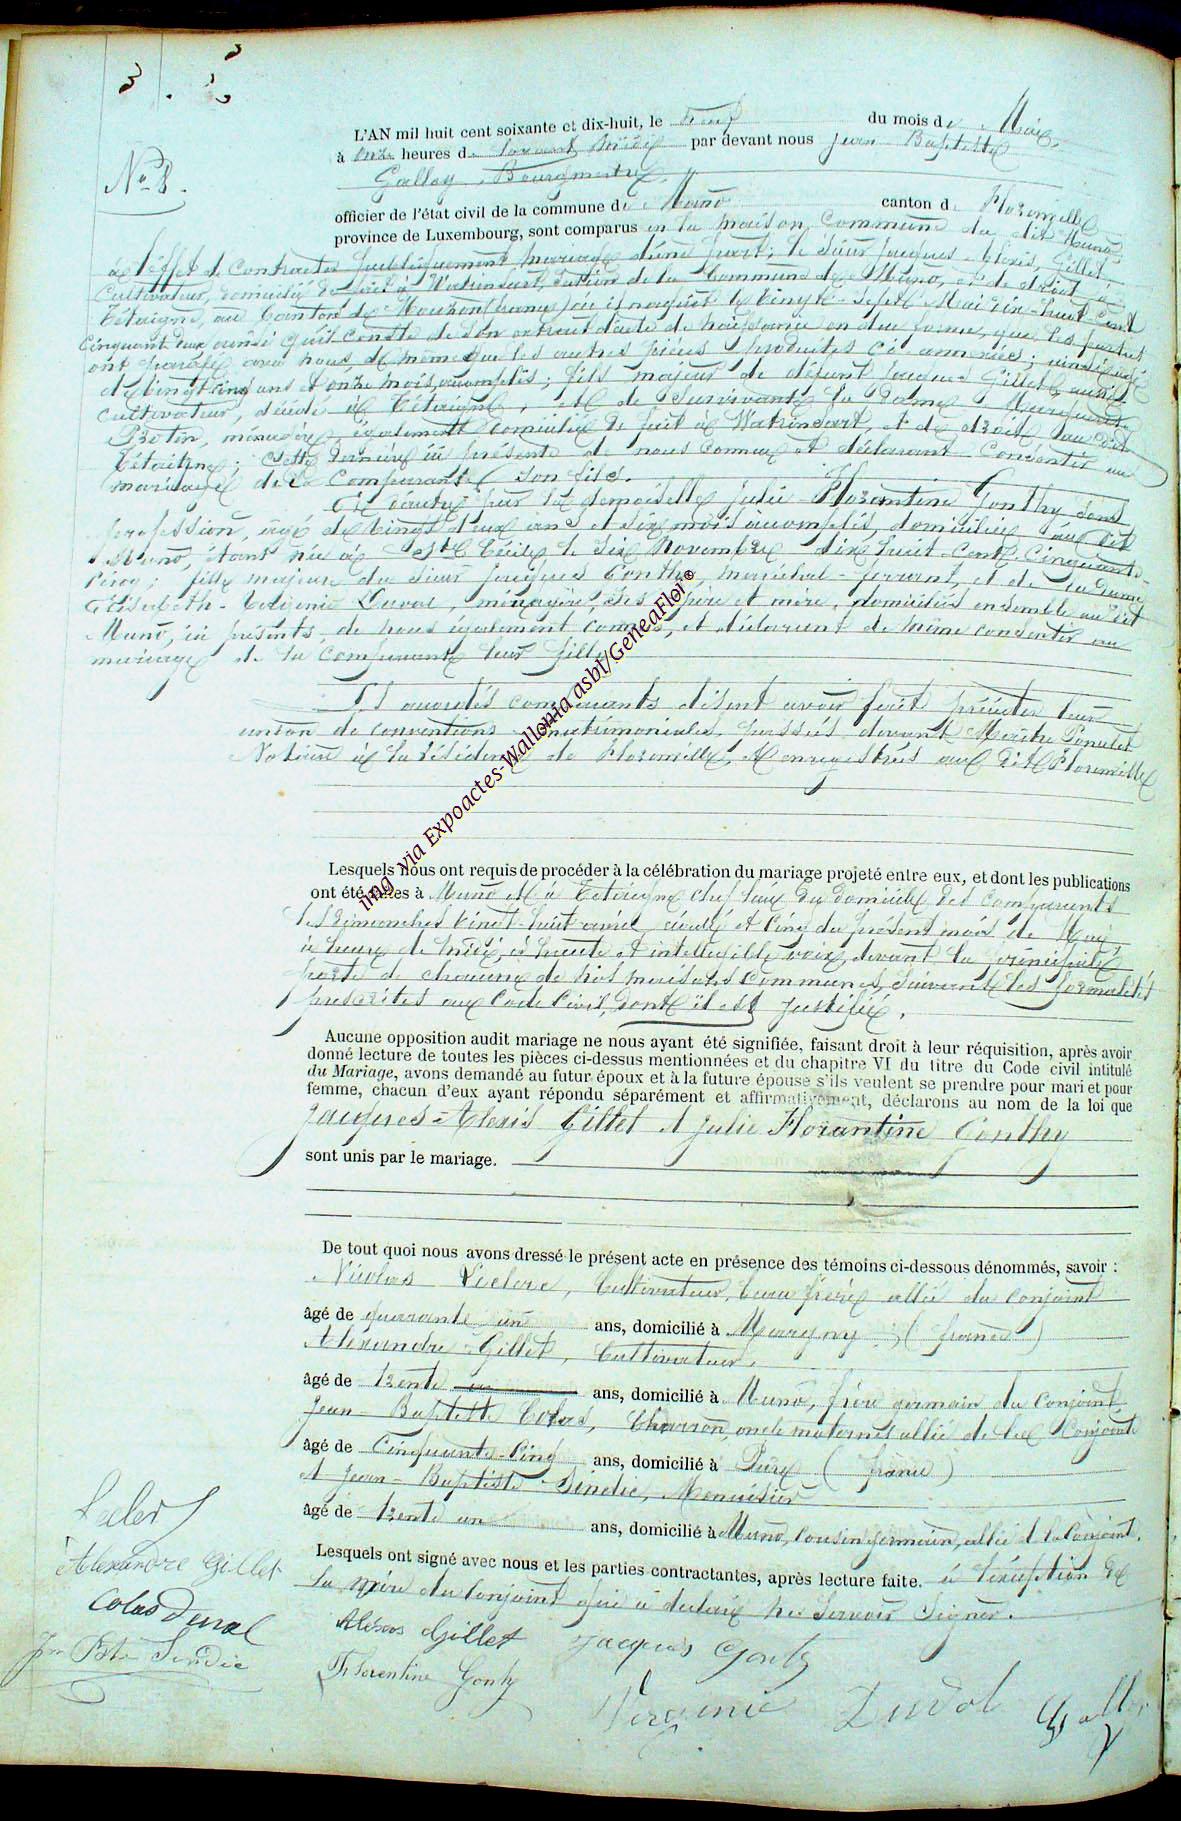 3
N° 8.
L'AN mil huit cent soixante et dix-huit, le neuf du mois de Mai
à onze heures d avant midi par devant nous Jean Baptiste
Gallay, Bourgmestre
officier de l'état civil de la commune de Muno canton d Florenville
province de Luxembourg, sont comparus en la maison commune du dit Muno
à l'effet de contracter publiquement mariage d'une part: le sieur Jacques Alexis Gillet
cultivateur, domicilié de fait à Watrinsart, section de la commune de Muno, et de droit à
Tétaigne, au canton de Mouzon (france) où il naquit le vingt-sept Mai dix-huit cent
cinquante deux ainsi qu'il conste de son extrait d'acte de naissance en due forme, que les parties
ont paraphé avec nous, de même que les autres pièces produites ci annexées;
de vingt cinq ans et onze mois accomplis; fils majeur de défunt Jacques Gillet,
cultivateur, décédé à Tétaigne, et de survivante la dame Marguerite
ménagère, également domiciliée de fait à Watrinsart, et de droit au dit
Tétaigne; cette dernière ici présente de nous connue et déclarant consentir au
mariage de comparant son fils.
Et d'autre part la demoiselle Julie Florantine Gonthy sans
profession, âgée de vingt deux ans et six mois accomplis, domiciliée au dit
Muno, étant née à Ste Cécile le six Novembre dix huit cent cinquante-
cinq; fille majeure du sieur Jacques Gonthy, maréchal-ferrant, et de la dame
Elisabeth- Duval, ménagère, ses père et mère, domiciliés ensemble au dit
Muno, ici présents, de nous également connus, et déclarant de même consentir au
mariage de la comparante leur fille.
comparants disent avoir fait précéder leur
union de conventions matrimoniales, passées devant Maître
Notaire à la résidence de Florenville, et enregistrées au dit Florenville
Lesquels nous ont requis de procéder à la célébration du mariage projeté entre eux, et dont les publications
ont été faites à Muno et à Tétaigne chef lieux du domicile des comparants
les dimanches vingt-huit avril, écoulé et cinq du présent mois de Mai
à heure de midi, à haute et intelligible voix, devant la principale
porte de chacune de nos maisons communes, suivant les formalités
prescrites au Code Civil, dont il est justifié.
Aucune opposition audit mariage ne nous ayant été signifiée, faisant droit à leur réquisition, après avoir
donné lecture de toutes les pièces ci-dessus mentionnées et du chapitre VI du titre du Code civil intitulé
du Mariage, avons demandé au futur époux et à la future épouse s'ils veulent se prendre pour mari et pour
femme, chacun d'eux ayant répondu séparément et affirmativement, déclarons au nom de la loi que
Jacques-Alexis Gillet et Julie Florantine Gonthy
sont unis par le mariage.
De tout quoi nous avons dressé le présent acte en présence des témoins ci-dessous dénommés, savoir :
Nicolas Leclerc, Cultivateur, beau frère allié du conjoint
âgé de quarante un ans, domicilié à Margny (france)
Alexandre Gillet, Cultivateur,
âgé de trente ans, domicilié à Muno, frère germain du conjoint
Jean-Baptiste Colas, Charron, oncle maternel allié de la Conjointe
âgé de Cinquante-Cinq ans, domicilié à Pure (france)
et Jean-Baptiste Sindic, Menuisier
âgé de trente un ans, domicilié à Muno, cousin germain, allié de la Conjointe.
Lesquels ont signé avec nous et les parties contractantes, après lecture faite. à l'exception de
la mère du conjoint qui a déclaré ne savoir signer.
Leclerc
Alexandre Gillet
Colas Duval
Jn Bte Sindic
Alexis Gillet Jacques Gonty
Florentine Gonty
Virginie Duvol Gallay
img via Expoactes-Wallonia asbl/GeneaFlor©